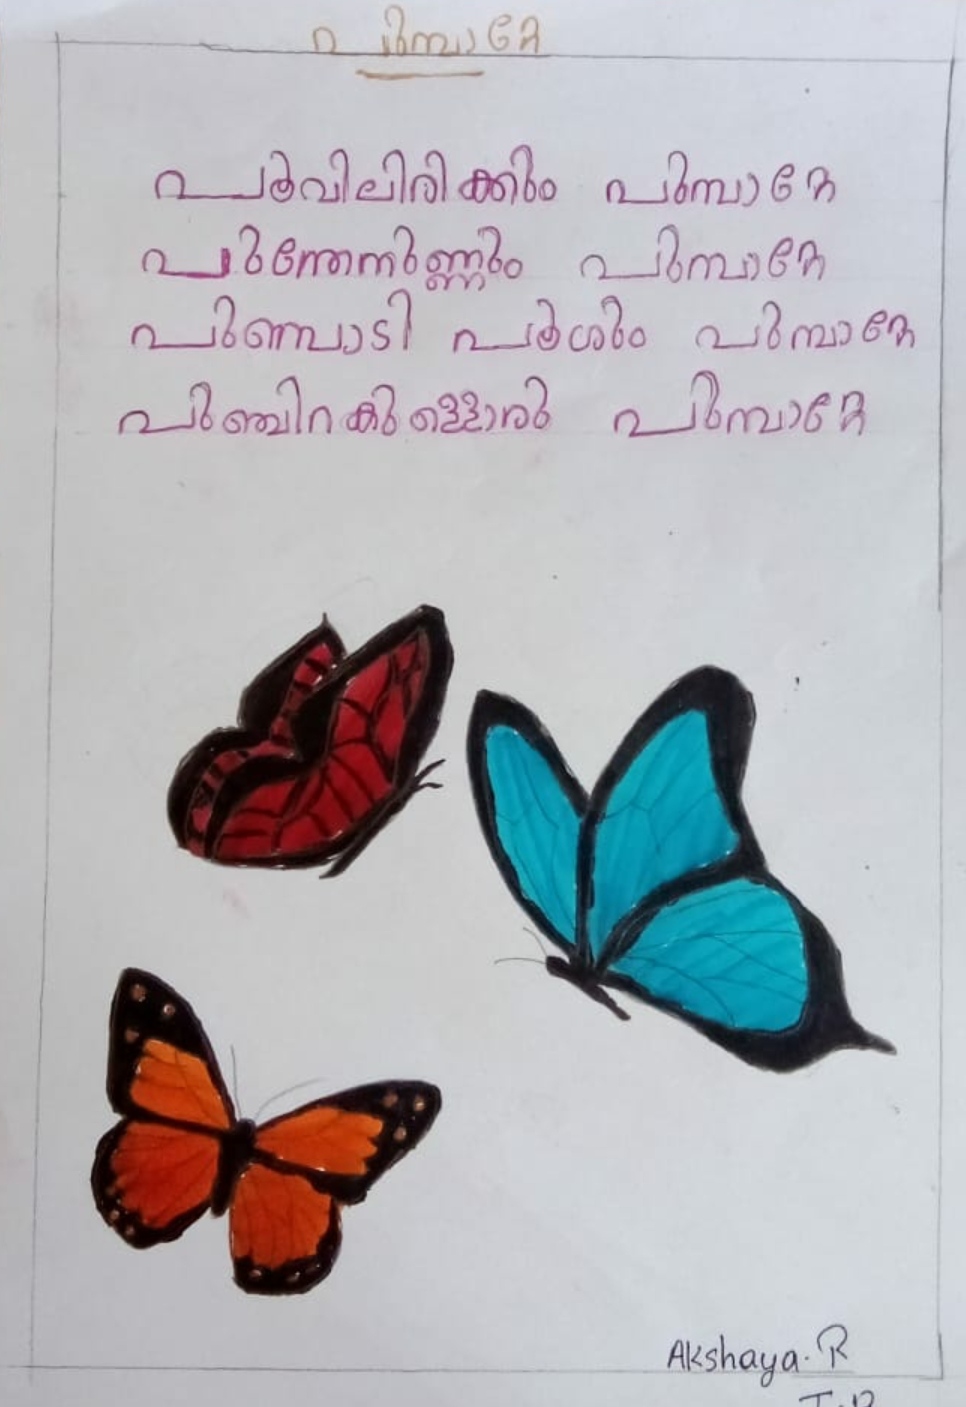 പൂമ്പാറ്റേ
പൂവിലിരിക്കും പൂമ്പാറ്റേ
പൂന്തേനുണ്ണും പൂമ്പാറ്റേ
പൂമ്പൊടി പൂശും പൂമ്പാറ്റേ
പൂഞ്ചിറകുള്ളൊരു പൂമ്പാറ്റേ
Akshaya. R